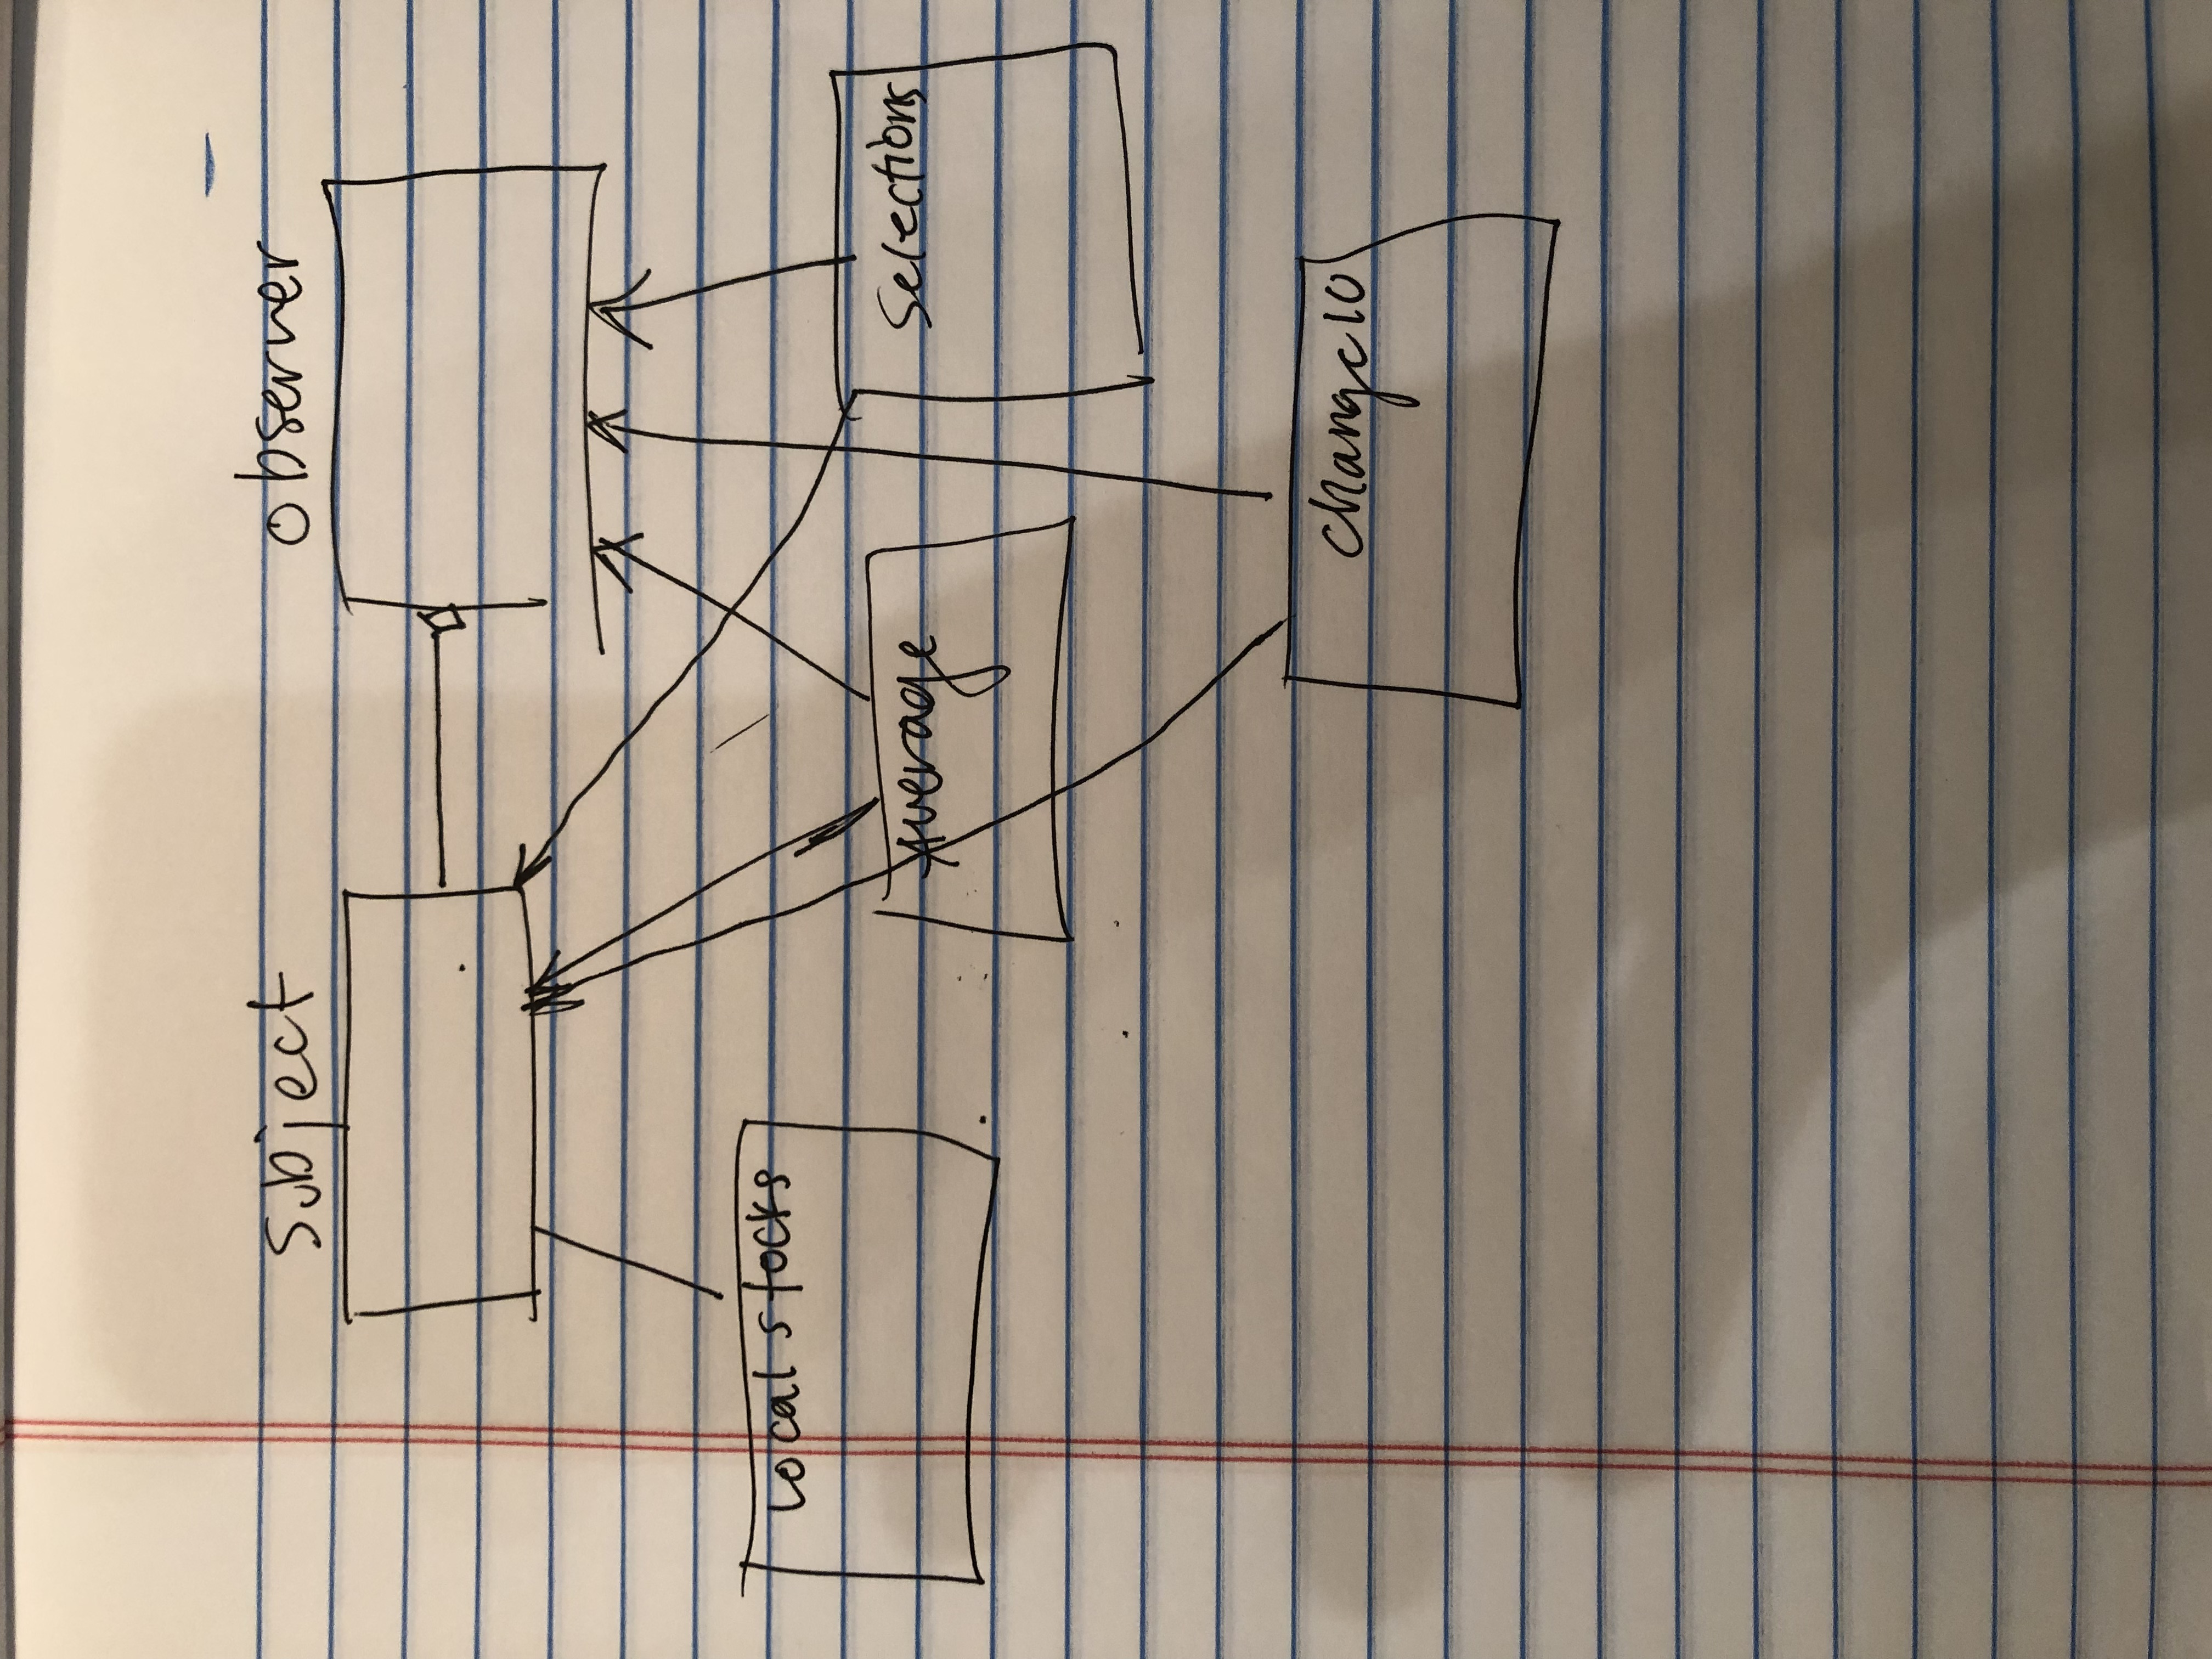 subject
observer
Local stocks
Average
Selections
Change10